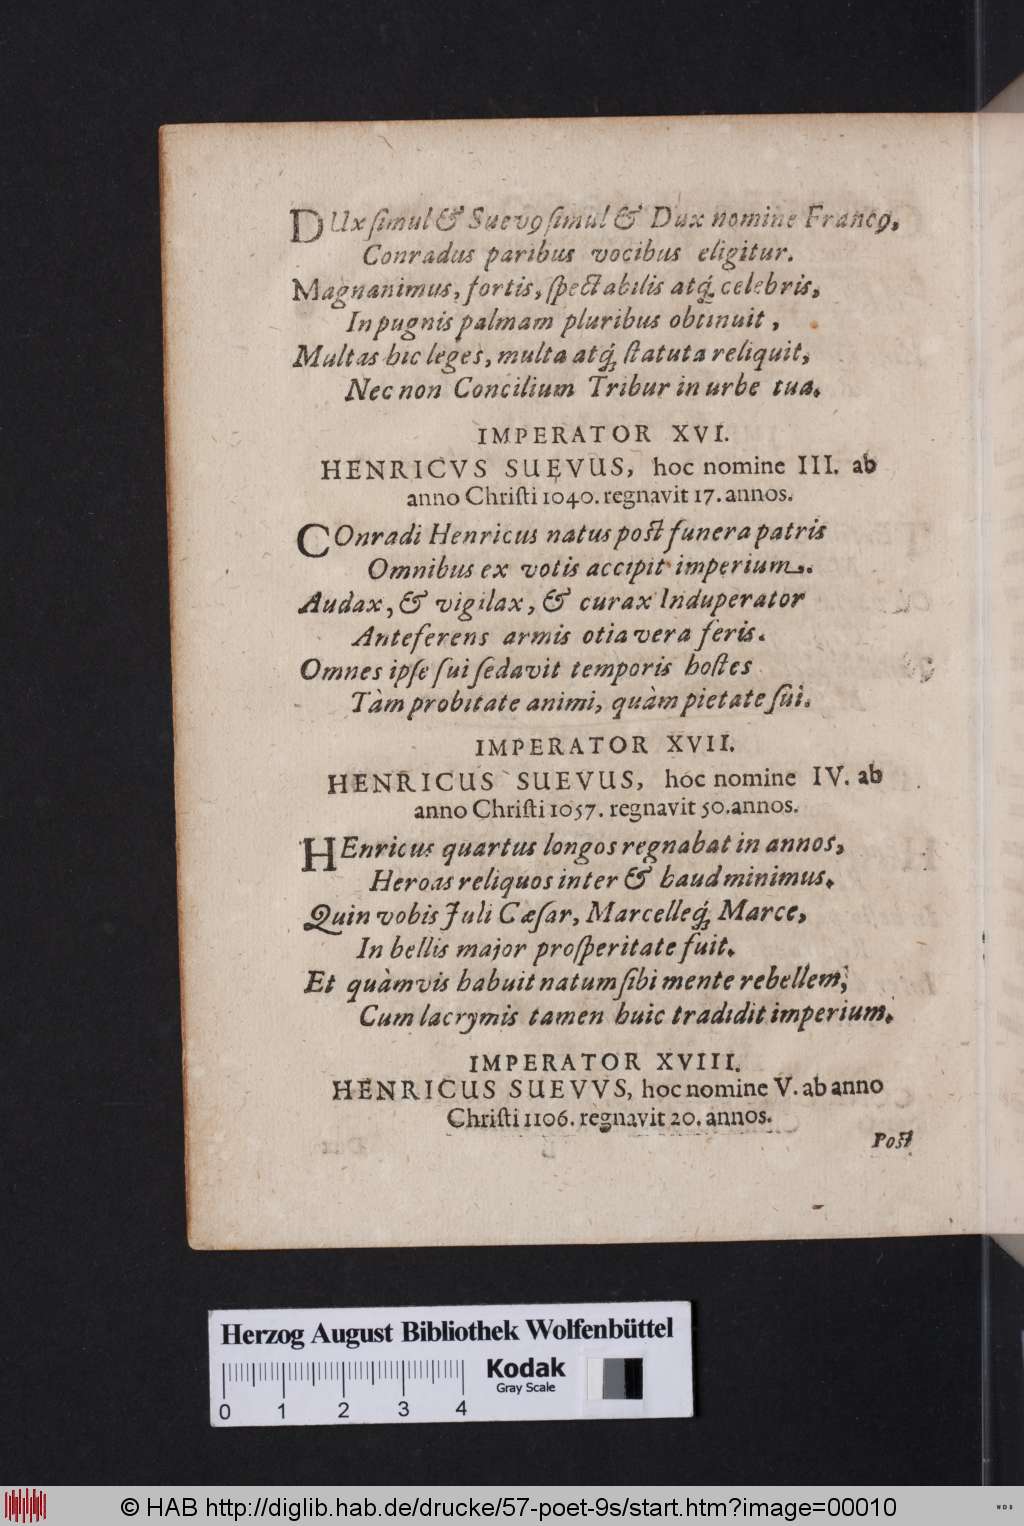 DUx ſimul & Suevꝰ ſimul & Dux nomine Francꝰ,
Conradus paribus vocibus eligitur.
Magnanimus, fortis, ſpectabilis atq́ꝫ celebris,
In pugnis palmam pluribus obtinuit,
Multas hic leges, multa atq́ꝫ ſtatuta reliquit,
Nec non Concilium Tribur in urbe tua.
IMPERATOR XVI.
HENRICVS SUEVUS, hoc nomine III. ab
anno Chriſti 1040. regnavit 17. annos.
COnradi Henricus natus poſt funera patris
Omnibus ex votis accipit imperium.
Audax, & vigilax, & curax Induperator
Anteferens armis otia vera feris.
Omnes ipſe ſui ſedavit temporis hoſtes
Tàm probitate animi, quàm pietate ſui.
IMPERATOR XVII.
HENRICUS SUEVUS, hoc nomine IV. ab
anno Chriſti 1057. regnavit 50. annos.
HEnricus quartus longos regnabat in annos,
Heroas reliquos inter & haud minimus.
Quin vobis Juli Cæſar, Marcelleq́ꝫ Marce,
In bellis major proſperitate fuit.
Et quàmvis habuit natum ſibi mente rebellem,
Cum lacrymis tamen huic tradidit imperium.
IMPERATOR XVIII.
HENRICUS SUEVVS, hoc nomine V. ab anno
Chriſti 1106. regnavit 20. annos.
Poſt
Herzog August Bibliothek Wolfenbüttel
Kodak
Gray Scale
0 1 2 3 4
© HAB http://diglib.hab.de/drucke/57-poet-9s/start.htm?image=00010